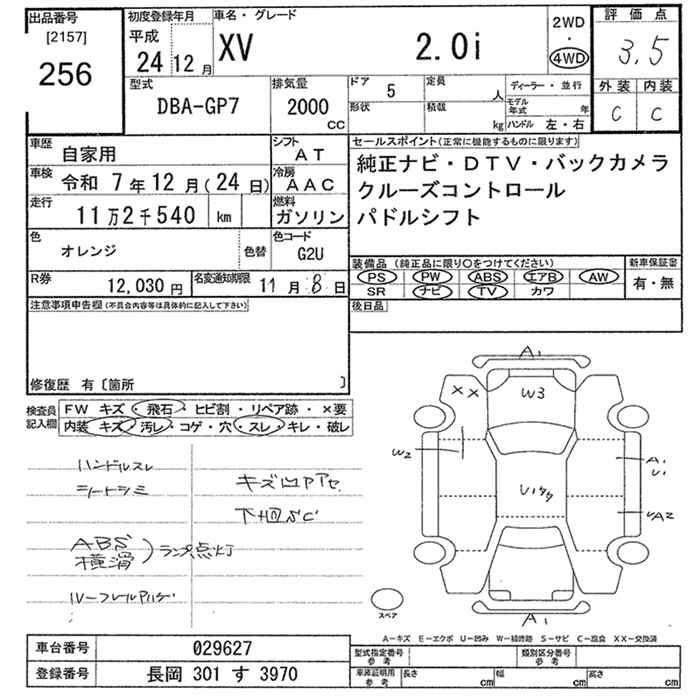 出品番号 [2157] 256
初度登録年月 平成 24 12 月
車名・グレード XV 2.0i
2WD ・ 4WD
評価点 3.5
外装 C 内装 C
型式 DBA-GP7
排気量 2000 CC
ドア 5 定員 人
形状 積載 kg
ディーラー・並行
モデル年式 年
ハンドル 左・右
車歴 自家用
シフト AT
車検 令和 7年12月(24日)
冷房 AAC
走行 11万2千540 km
燃料 ガソリン
色 オレンジ 色替
色コード G2U
R券 12,030 円
名変通知期限 11月 8日
セールスポイント(正常に機能するものに限ります)
純正ナビ・DTV・バックカメラ
クルーズコントロール
パドルシフト
装備品(純正品に限り○をつけてください)
PS PW ABS エアB AW
SR ナビ TV カワ
新車保証書 有・無
後日品
注意事項申告欄(不具合内容等は具体的に記入して下さい)
修復歴 有〔箇所 〕
検査員記入欄
FW キズ・飛石・ヒビ割・リペア跡・×要
内装 キズ・汚レ・コゲ・穴・スレ・キレ・破レ
ハンドルスレ
シートシミ
キズ凹アアセ
下回SC
ABS
横滑
ランプ点灯
A1
XX
W3
W2
A1
U1
A2
A1
スペア
A-キズ E-エクボ U-凹み W-補修跡 S-サビ C-腐食 XX-交換済
車台番号 029627
登録番号 長岡 301 す 3970
型式指定番号 参考
類別区分番号 参考
車庫証明用 参考 長さ cm 幅 cm 高さ cm